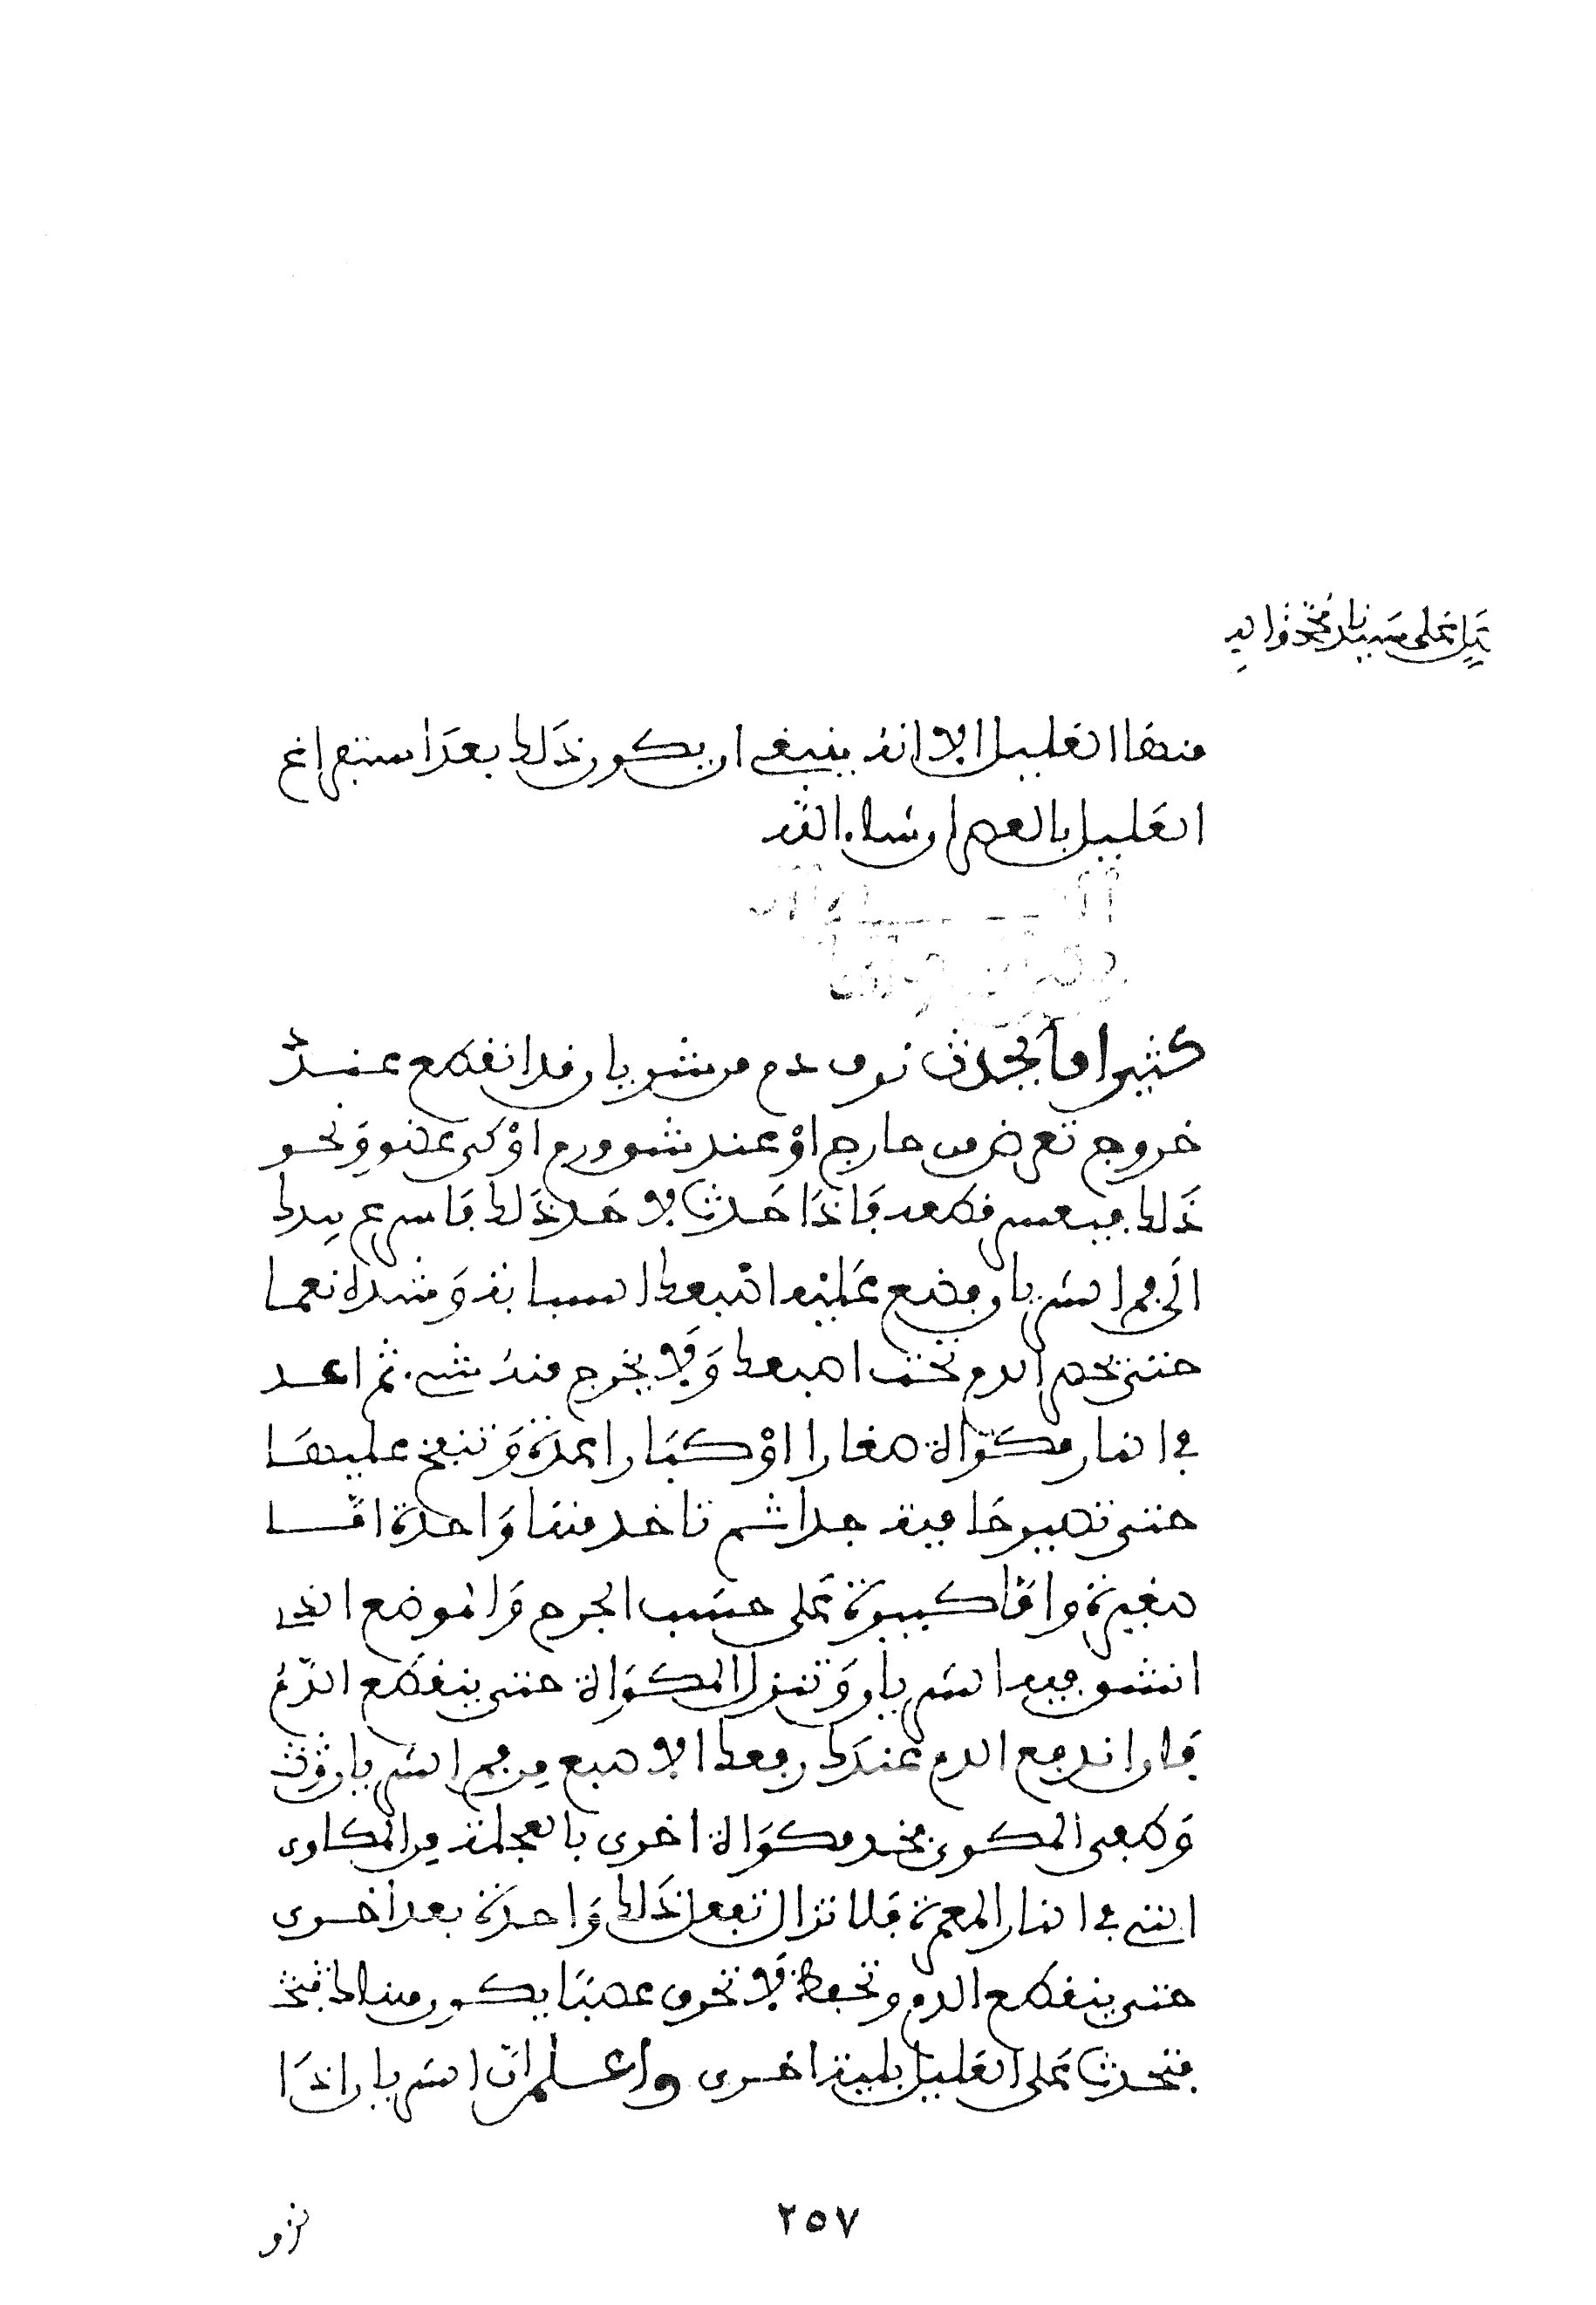 منها العليل الا انه ينبغي ان يكون ذلك بعد استفراغ
العليل بالفصد ان شاء الله
كثيرا ما يحدث نزف دم من شريان قد انقطع عند
خروج تعرض من خارج او عند شق ورم او كي عضو ونحو
ذلك فيعسر قطعه فاذا حدث لاحد ذلك فاسرع بيدك
الى فم الشريان فضع عليه اصبعك السبابة وشده نعما
حتى يحصر الدم تحت اصبعك ولا يخرج منه شيء ثم اعد
في النار مكواة صغارا او كبارا عدة وتنفخ عليها
حتى تصير حامية جدا ثم تاخذ منها واحدة اما
صغيرة واما كبيرة على حسب الجرح والموضع الذي
انشق فيه الشريان وتنزل المكواة حتى ينقطع الدم
فان اندفع الدم عند رفعك الاصبع من فم الشريان
وطفى المكوى فخذ مكواة اخرى بالعجلة من المكاوي
التي في النار المعدة فلا تزال تفعل ذلك واحدة بعد اخرى
حتى ينقطع الدم وتحفظ لا تحرق عصبا يكون هنالك
فتحدث على العليل بلية اخرى واعلم ان الشريان اذا
٢٥٧
نزف